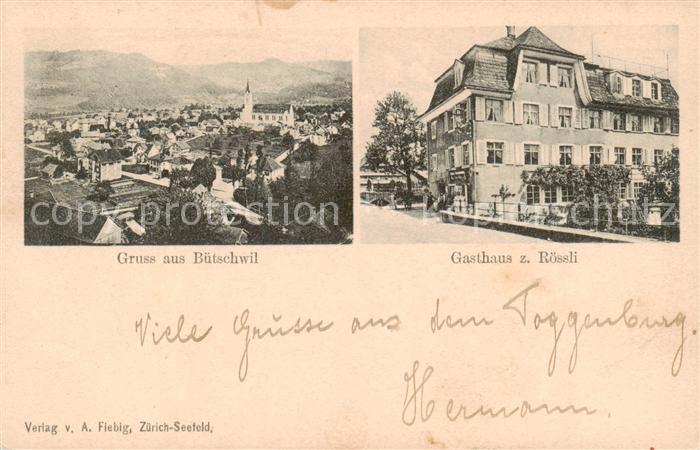 Gruss aus Bütschwil
Gasthaus z. Rössli
Viele Grüsse aus dem Toggenburg.
Hermann.
Verlag v. A. Fiebig, Zürich-Seefeld.
copyright